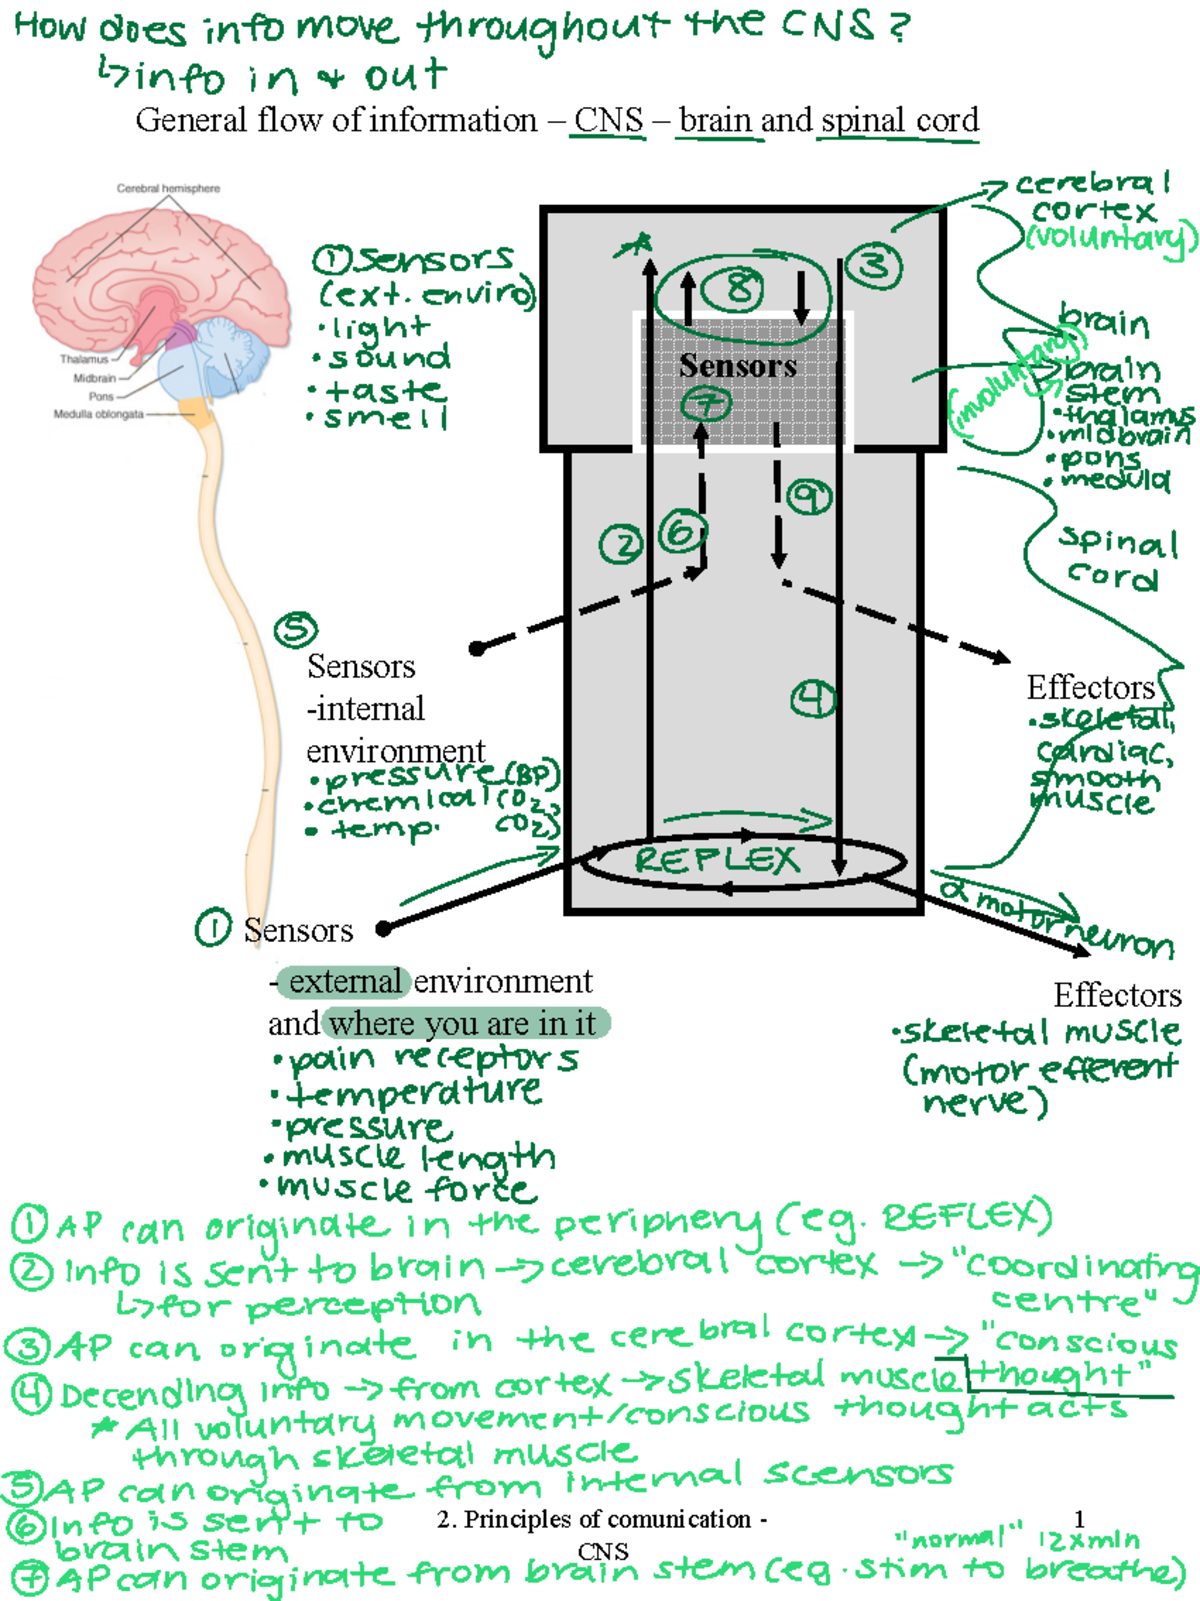 How does info move throughout the CNS?
↳info in & out
General flow of information – CNS – brain and spinal cord
Cerebral hemisphere
Thalamus
Midbrain
Pons
Medulla oblongata
① Sensors
(ext. enviro)
• light
• sound
• taste
• smell
③
⑧
Sensors
⑦
cerebral
cortex
(voluntary)
brain
(involuntary)
brain
stem
• thalamus
• midbrain
• pons
• medula
spinal
cord
②
⑥
⑨
④
⑤
Sensors
-internal
environment
• pressure (BP)
• chemical (O₂,
CO₂)
• temp.
Effectors
• skeletal,
cardiac,
smooth
muscle
REFLEX
① Sensors
- external environment
and where you are in it
• pain receptors
• temperature
• pressure
• muscle length
• muscle force
α motor neuron
Effectors
• skeletal muscle
(motor efferent
nerve)
① AP can originate in the periphery (eg. REFLEX)
② Info is sent to brain → cerebral cortex → "coordinating
centre"
↳ for perception
③ AP can originate in the cerebral cortex → "conscious
thought"
④ Decending info → from cortex → skeletal muscle
* All voluntary movement/conscious thought acts
through skeletal muscle
⑤ AP can originate from internal scensors
⑥ Info is sent to
brain stem
2. Principles of comunication -
CNS
1
"normal" 12xmin
⑦ AP can originate from brain stem (eg. stim to breathe)